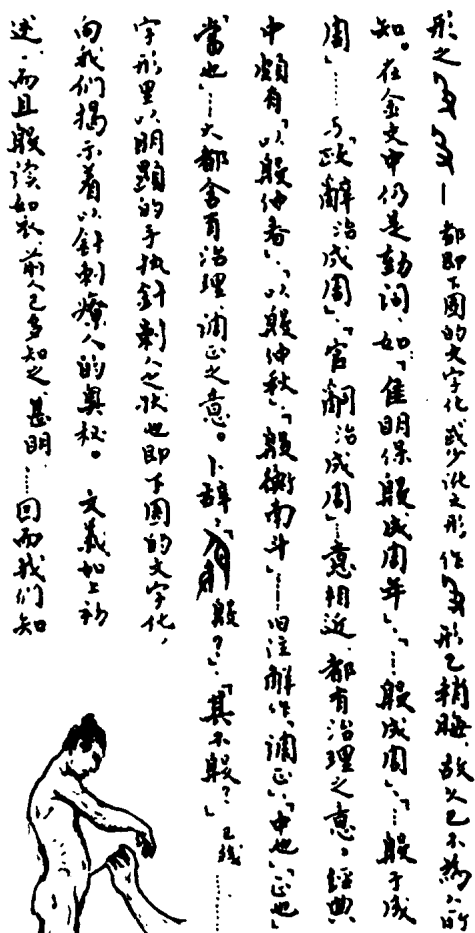 形之 — 都即下图的文字化或少讹之形,作 形已稍晦,故人已不为人所
知。在金文中仍是动词,如:「隹明保殷成周年」、「……殷成周」、「……殷于成
周」……与「政𤔲治成周」、「官𤔲治成周」……意相近,都有治理之意。经典
中颇有「以殷仲春」、「以殷仲秋」、「殷衡南斗」……旧注解作「调正」、「中也」、「正也」
「当也」……大都含有治理调正之意。卜辞: 殷?」、「其不殷?」
字形里以明显的手执针刺人之状也即下图的文字化,
向我们揭示着以针刺疗人的奥秘。文义如上初
述,而且殷读如衣,前人已多知之,甚明,……因而我们知